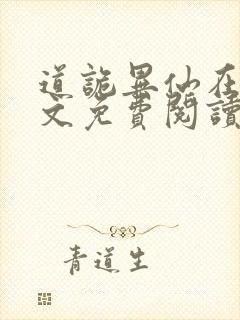 道詭異仙在
文免費閱讀
青道生